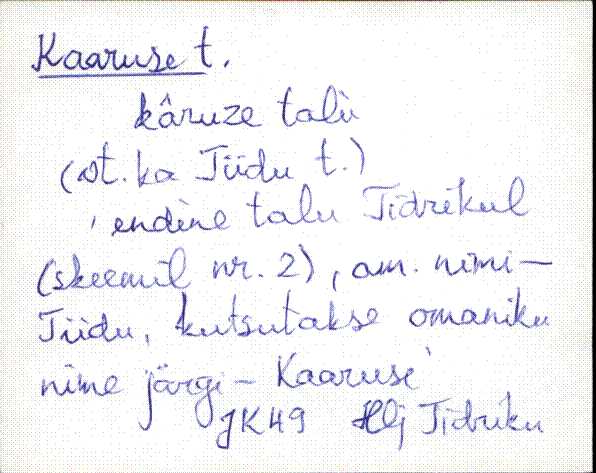 Kaaruse t.
kâruze talù
(vt. ka Tiidu t.)
'endine talu Tidrikul
(skeemil nr. 2), am. nimi –
Tiidu, kutsutakse omaniku
nime järgi – Kaaruse'
JK49 Hlj Tidriku